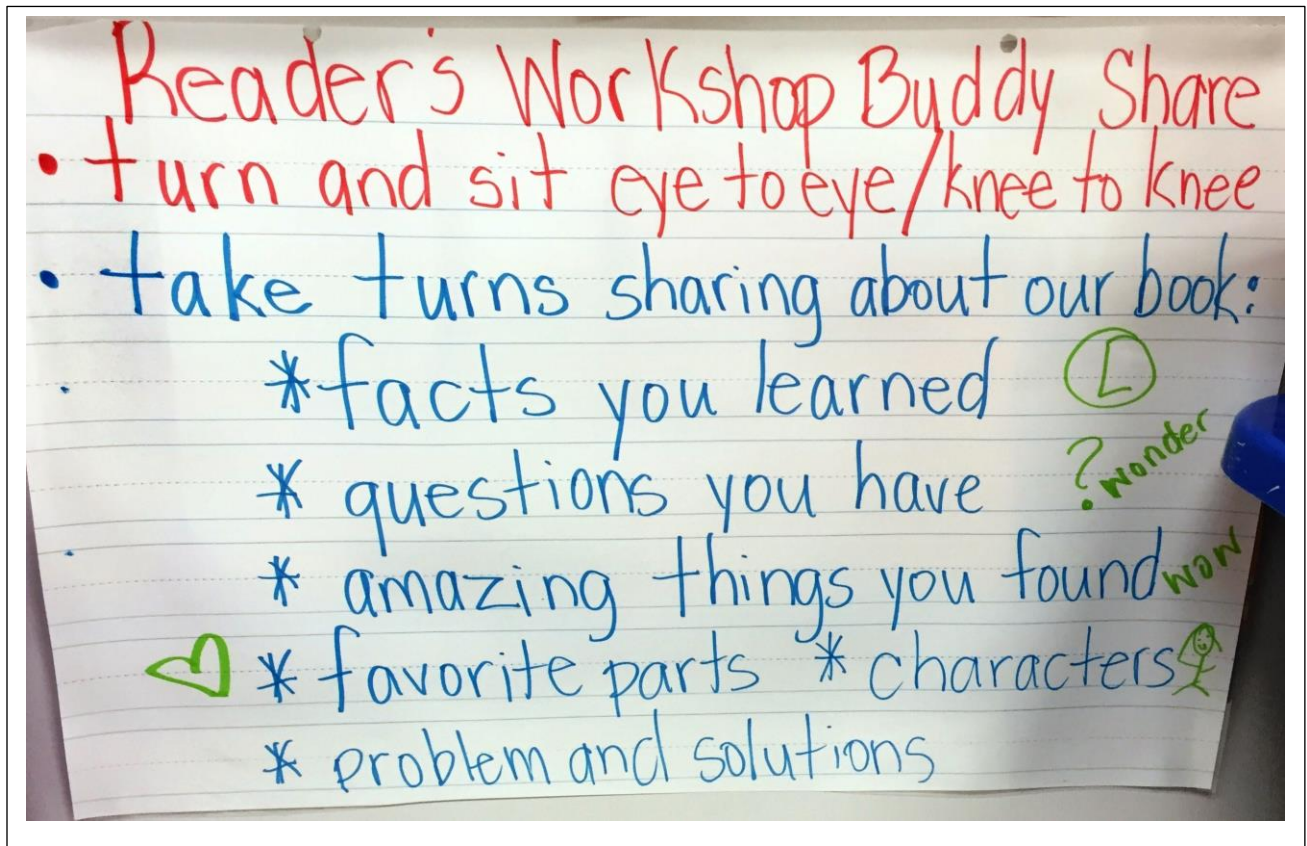 Reader's Workshop Buddy Share
• turn and sit eye to eye/knee to knee
• take turns sharing about our book:
* facts you learned L
* questions you have ? wonder
* amazing things you found wow
* favorite parts * characters
* problem and solutions